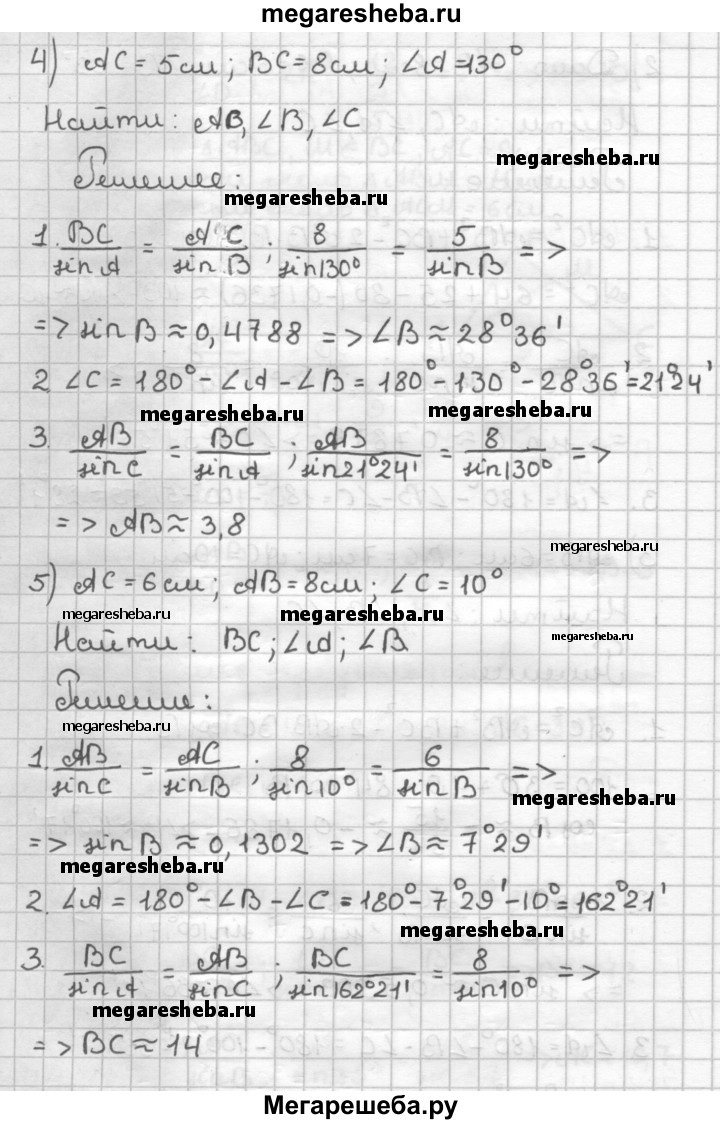 megaresheba.ru
4) AC = 5см; BC = 8см; ∠A = 130°
Найти: AB, ∠B, ∠C
megaresheba.ru
Решение:
megaresheba.ru
1. BC/sin A = AC/sin B; 8/sin130° = 5/sin B =>
=> sin B ≈ 0,4788 => ∠B ≈ 28°36'
2. ∠C = 180° - ∠A - ∠B = 180° - 130° - 28°36' = 21°24'
megaresheba.ru megaresheba.ru
3. AB/sin C = BC/sin A; AB/sin21°24' = 8/sin130° =>
=> AB ≈ 3,8
megaresheba.ru
5) AC = 6см; AB = 8см; ∠C = 10°
megaresheba.ru megaresheba.ru
Найти: BC; ∠A; ∠B
megaresheba.ru
Решение:
megaresheba.ru
1. AB/sin C = AC/sin B; 8/sin10° = 6/sin B =>
megaresheba.ru
=> sin B ≈ 0,1302 => ∠B ≈ 7°29'
megaresheba.ru
2. ∠A = 180° - ∠B - ∠C = 180° - 7°29' - 10° = 162°21'
megaresheba.ru
3. BC/sin A = AB/sin C; BC/sin162°21' = 8/sin10° =>
megaresheba.ru
=> BC ≈ 14
Мегарешеба.ру